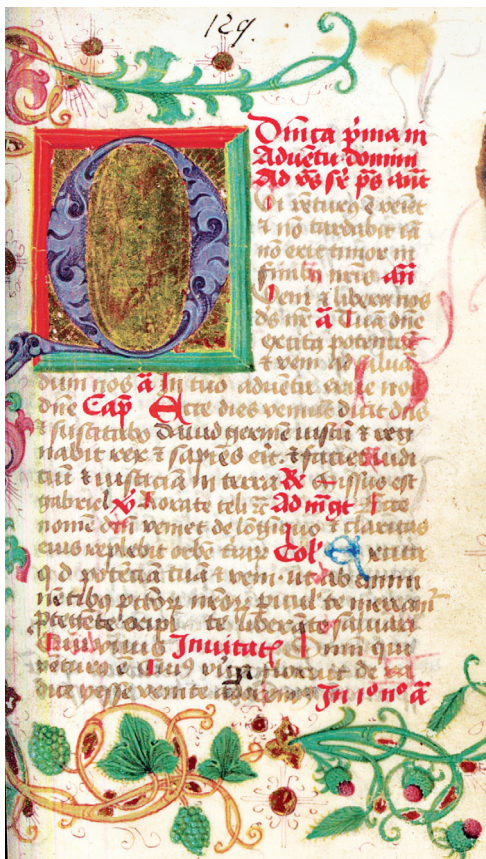 129.
Dnica pma in
Adventu domini
Ad vs sr ps ant
Qui venturus e veniet
t no tardabit iã
nõ erit timor in
finibus nris an
Veni t libera nos
ds nr a Tuã dne
excita potentiã
t veni ad salvã
dum nos a In tuo adventu erue nos
dne Cap Ecce dies veniunt dicit dns
t suscitabo david germen iustũ t reg
nabit rex t sapies erit t faciet iudi
ciũ t iusticiã in terra R Missus est
gabriel V Rorate celi Ad mgt Ecce
nomen dni veniet de longinquo t claritas
eius replebit orbẽ terrar Col Excita
qs d potẽciã tuã t veni ut ab immi
nẽtibus pctor nror piculis te mereamr
ptegẽte eripi te liberãte salvari
Qui vivis Invitat Dnm qui
venturus e
dice yesse venite adoremus In 1o no a